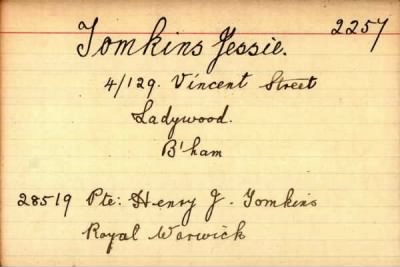 Tomkins Jessie. 2257
4/129. Vincent Street
Ladywood.
B'ham
28519 Pte: Henry J. Tomkins
Royal Warwick